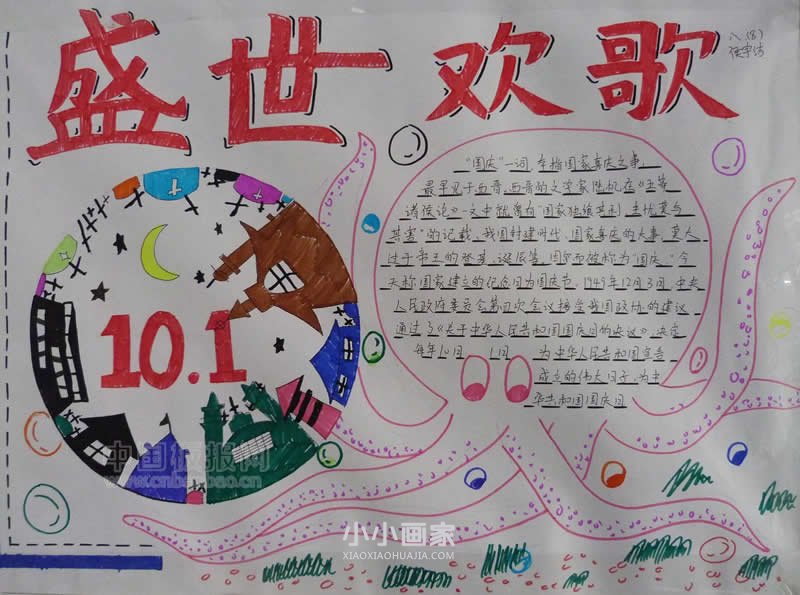 盛世欢歌
八.(8)
"国庆"一词,本指国家喜庆之事、
最早见于西晋。西晋的文学家陆机在《五等
诸侯论》一文中就曾有"国家独飨其利,主忧莫与
其害"的记载、我国封建时代、国家喜庆的大事、莫大
过于帝王的登基、诞辰等。因而被称为"国庆"今
天称国家建立的纪念日为国庆节。1949年12月3日,中央
人民政府委员会第四次会议接受我国政协的建议
通过了《关于中华人民共和国国庆日的决议》,决定
每年10月 1日 为中华人民共和国宣告
成立的伟大日子,为中
华共和国国庆日
10.1
中国板报网
www.cnbanbao.cn
小小画家
XIAOXIAOHUAJIA.COM